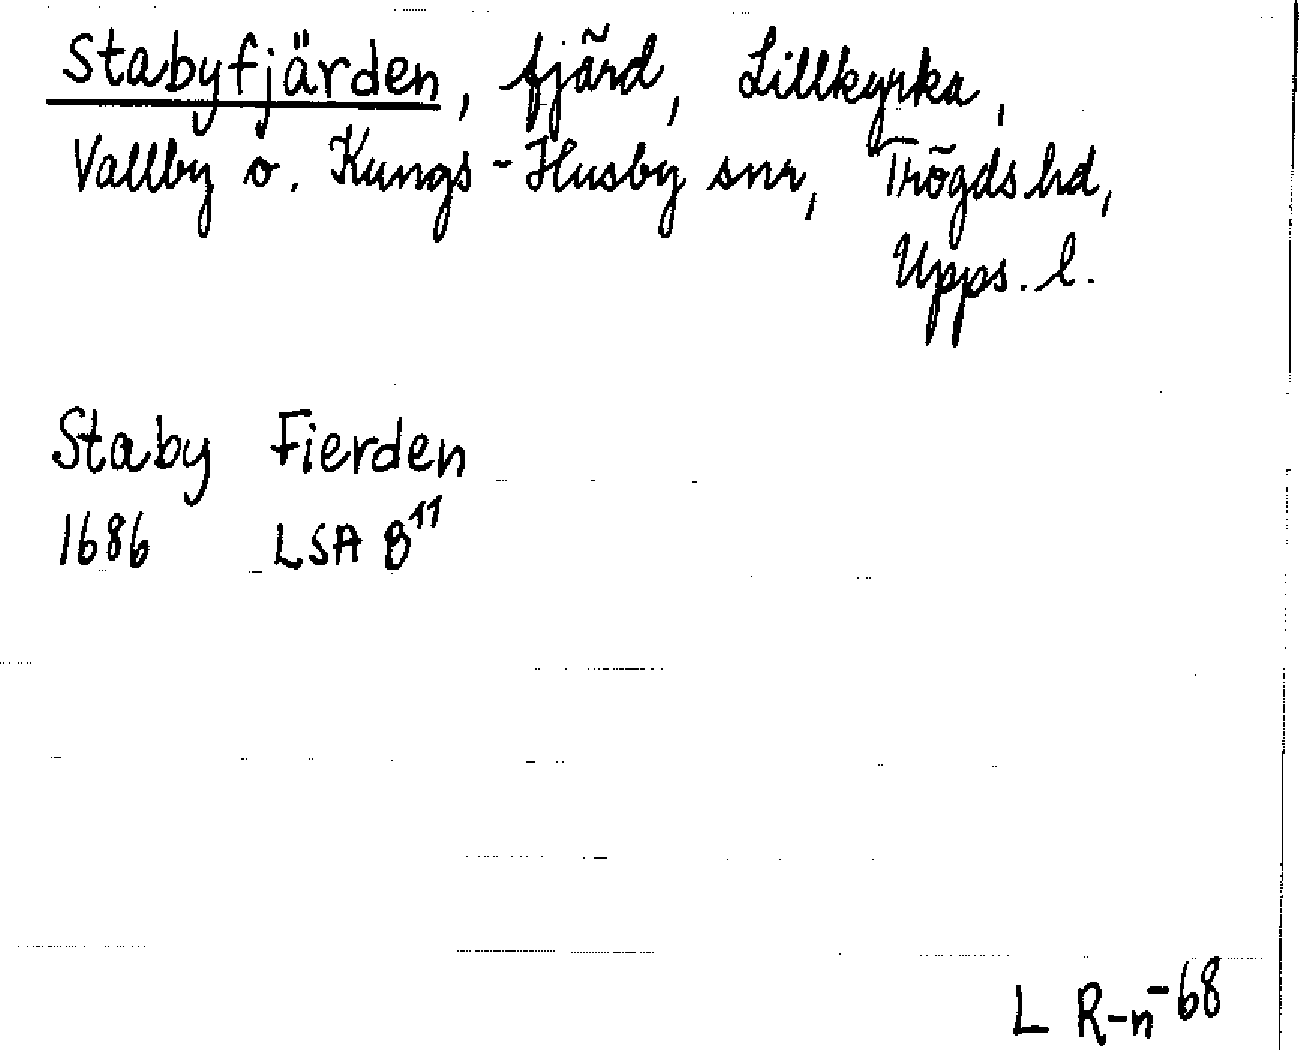 Stabyfjärden, fjärd, Lillkyrka,
Vallby o. Kungs-Husby snr, Trögds hd,
Upps. l.
Staby Fierden
1686 LSA B¹¹
L R-n-68